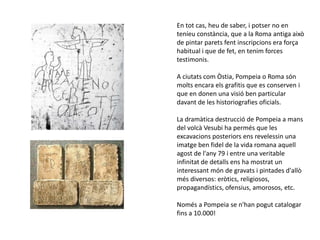 En tot cas, heu de saber, i potser no en
teníeu constància, que a la Roma antiga això
de pintar parets fent inscripcions era força
habitual i que de fet, en tenim forces
testimonis.
A ciutats com Òstia, Pompeia o Roma són
molts encara els grafitis que es conserven i
que en donen una visió ben particular
davant de les historiografies oficials.
La dramàtica destrucció de Pompeia a mans
del volcà Vesubi ha permés que les
excavacions posteriors ens revelessin una
imatge ben fidel de la vida romana aquell
agost de l'any 79 i entre una veritable
infinitat de detalls ens ha mostrat un
interessant món de gravats i pintades d'allò
més diversos: eròtics, religiosos,
propagandístics, ofensius, amorosos, etc.
Només a Pompeia se n'han pogut catalogar
fins a 10.000!